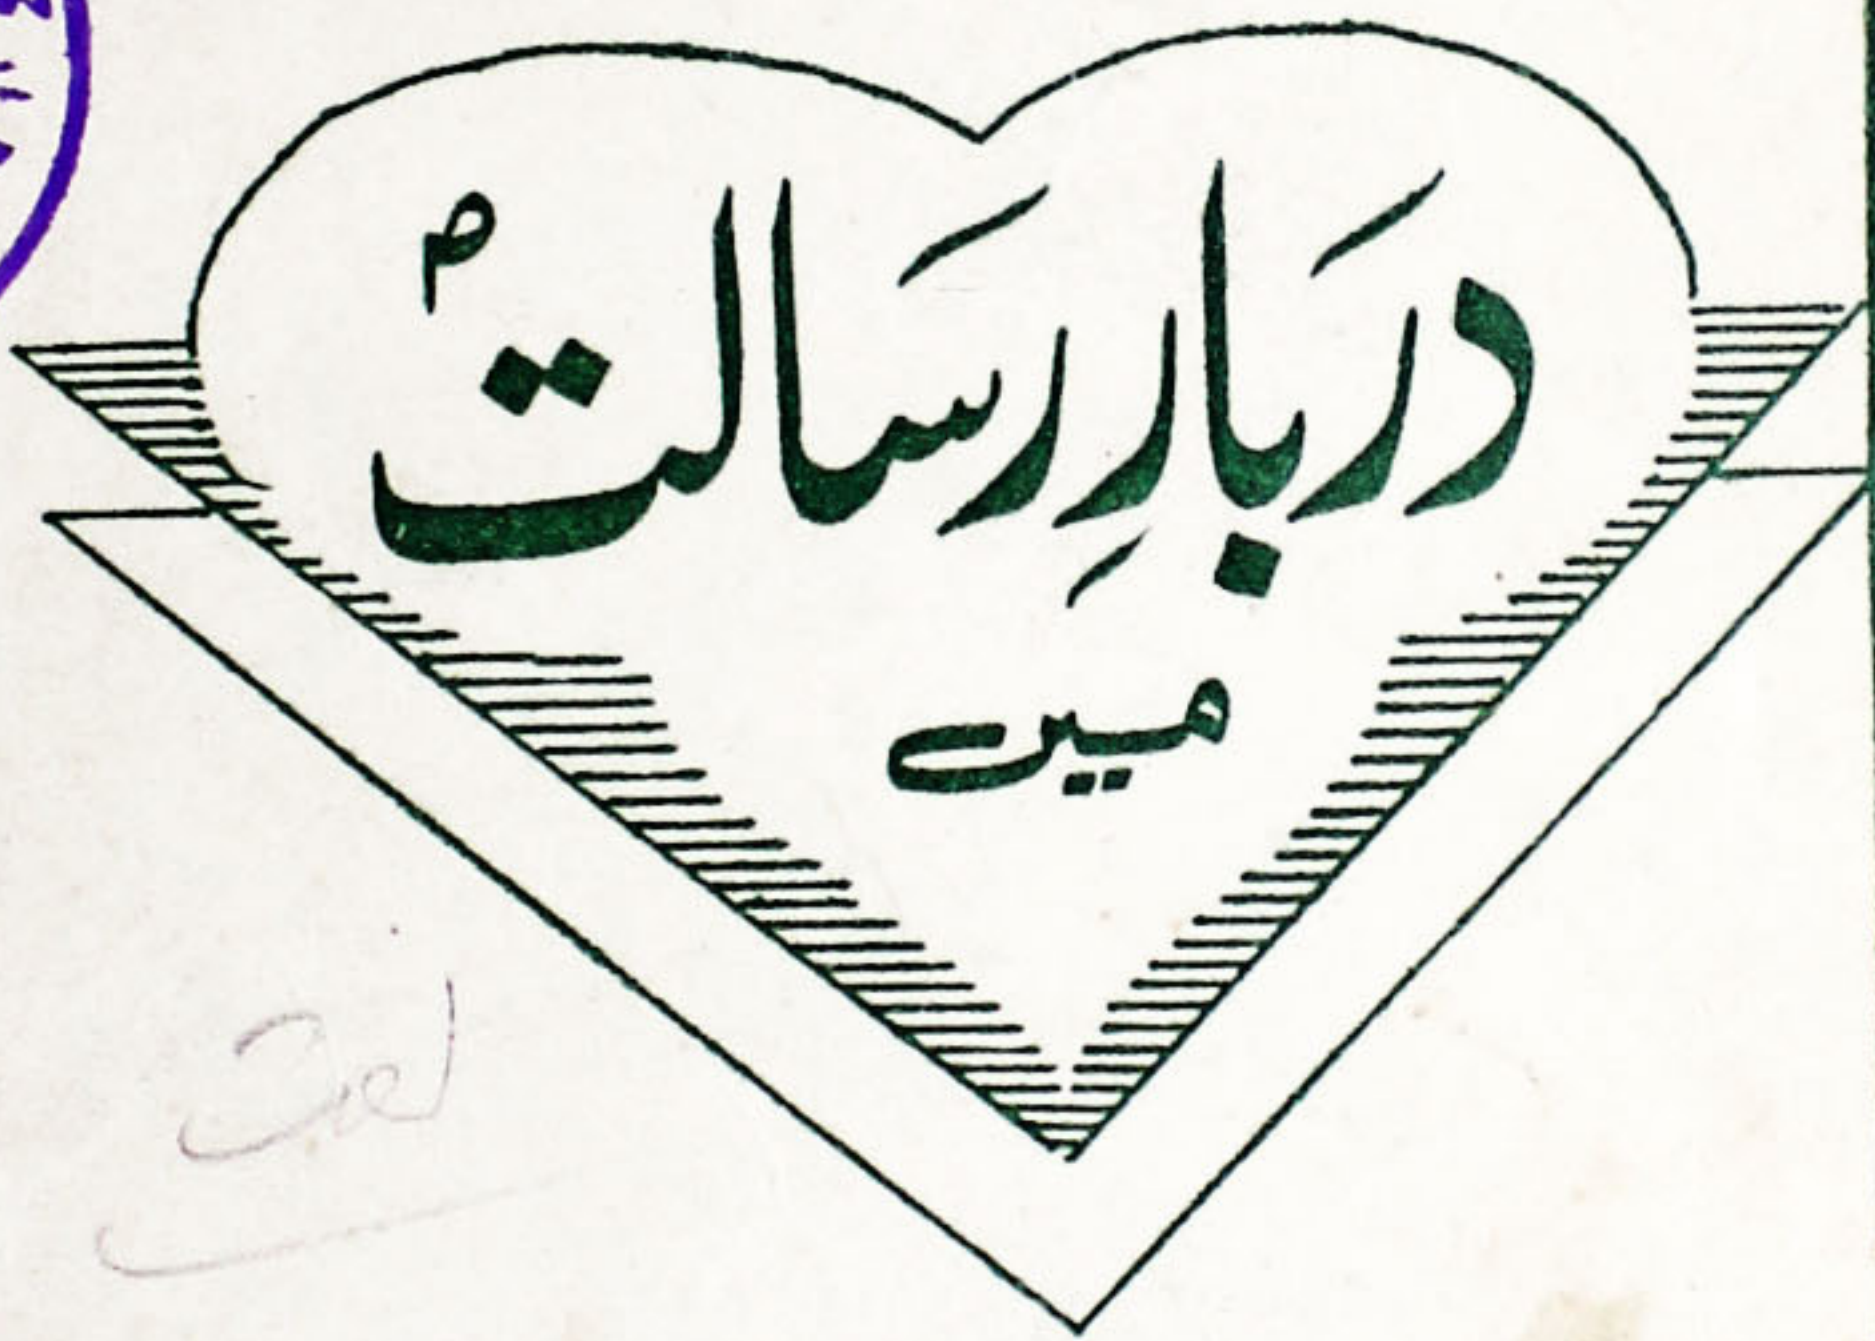 دَربارِ رَسالتؐ
میں
نعت